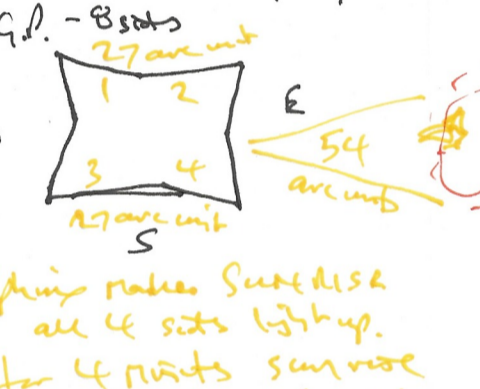 G.P. - 8 sides
27 arc unit
1 2
E
54
arc unit
3 4
27 arc unit
S
makes Sunrise
all 4 sets light up.
4 Minits sunrise